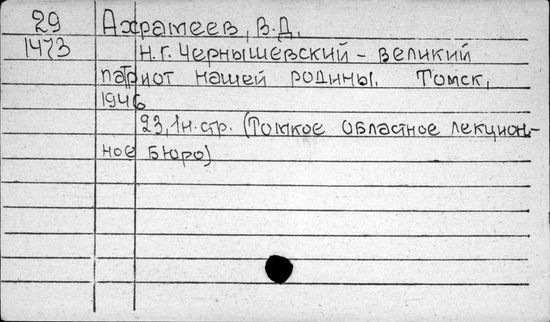 29 Ахрамеев, В.Д.
1473 Н.Г. Чернышевский - великий
патриот нашей родины. Томск,
1946
23,1н.стр. (Томкое областное лекцион-
ное бюро)